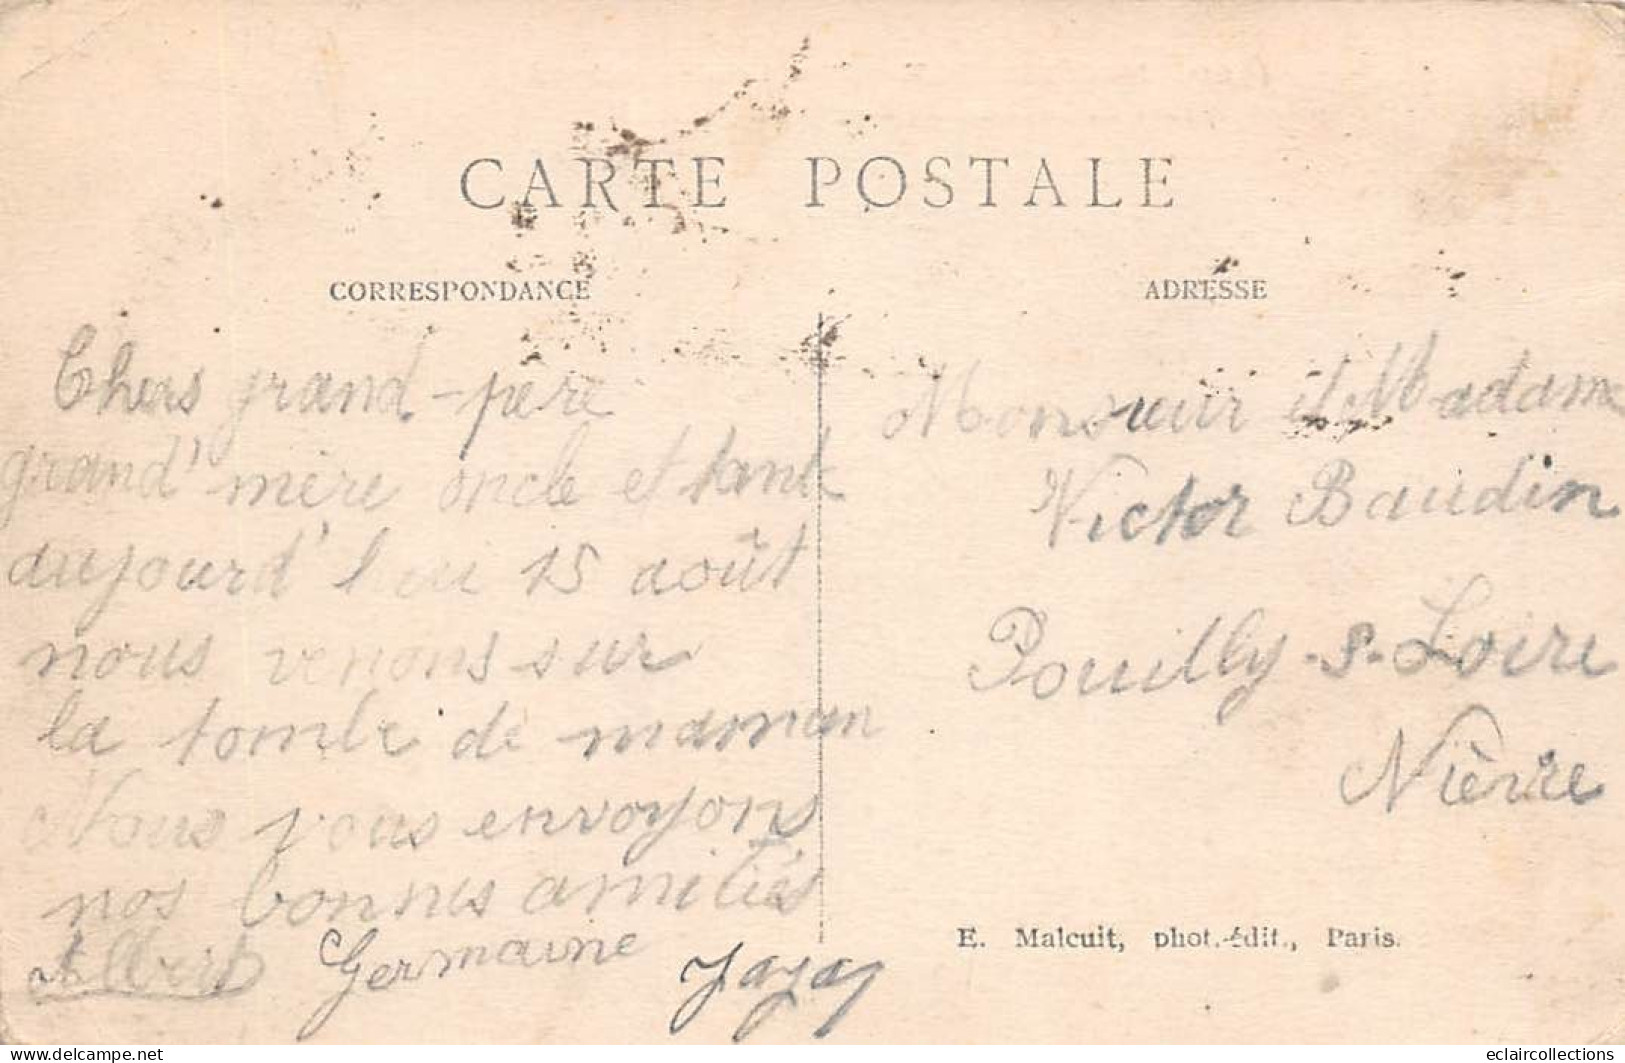 CARTE POSTALE
CORRESPONDANCE
Chers grand-père
grand'mère oncle et tante
aujourd'hui 15 août
nous venons sur
la tombe de maman
Nous vous envoyons
nos bonnes amitiés
Albert Germaine
ADRESSE
Monsieur et Madame
Victor Baudin
Pouilly-s-Loire
Nièvre
E. Malcuit, phot.-édit., Paris.
www.delcampe.net
eclaircollections